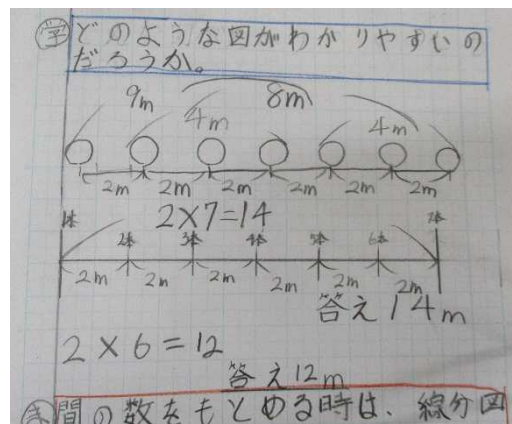 学 どのような図がわかりやすいの
だろうか。
9m 8m
4m 4m
2m 2m 2m 2m 2m 2m
2×7=14
1本 2本 3本 4本 5本 6本 7本
2m 2m 2m 2m 2m 2m
答え14m
2×6=12
答え12m
ま 間の数をもとめる時は、線分図